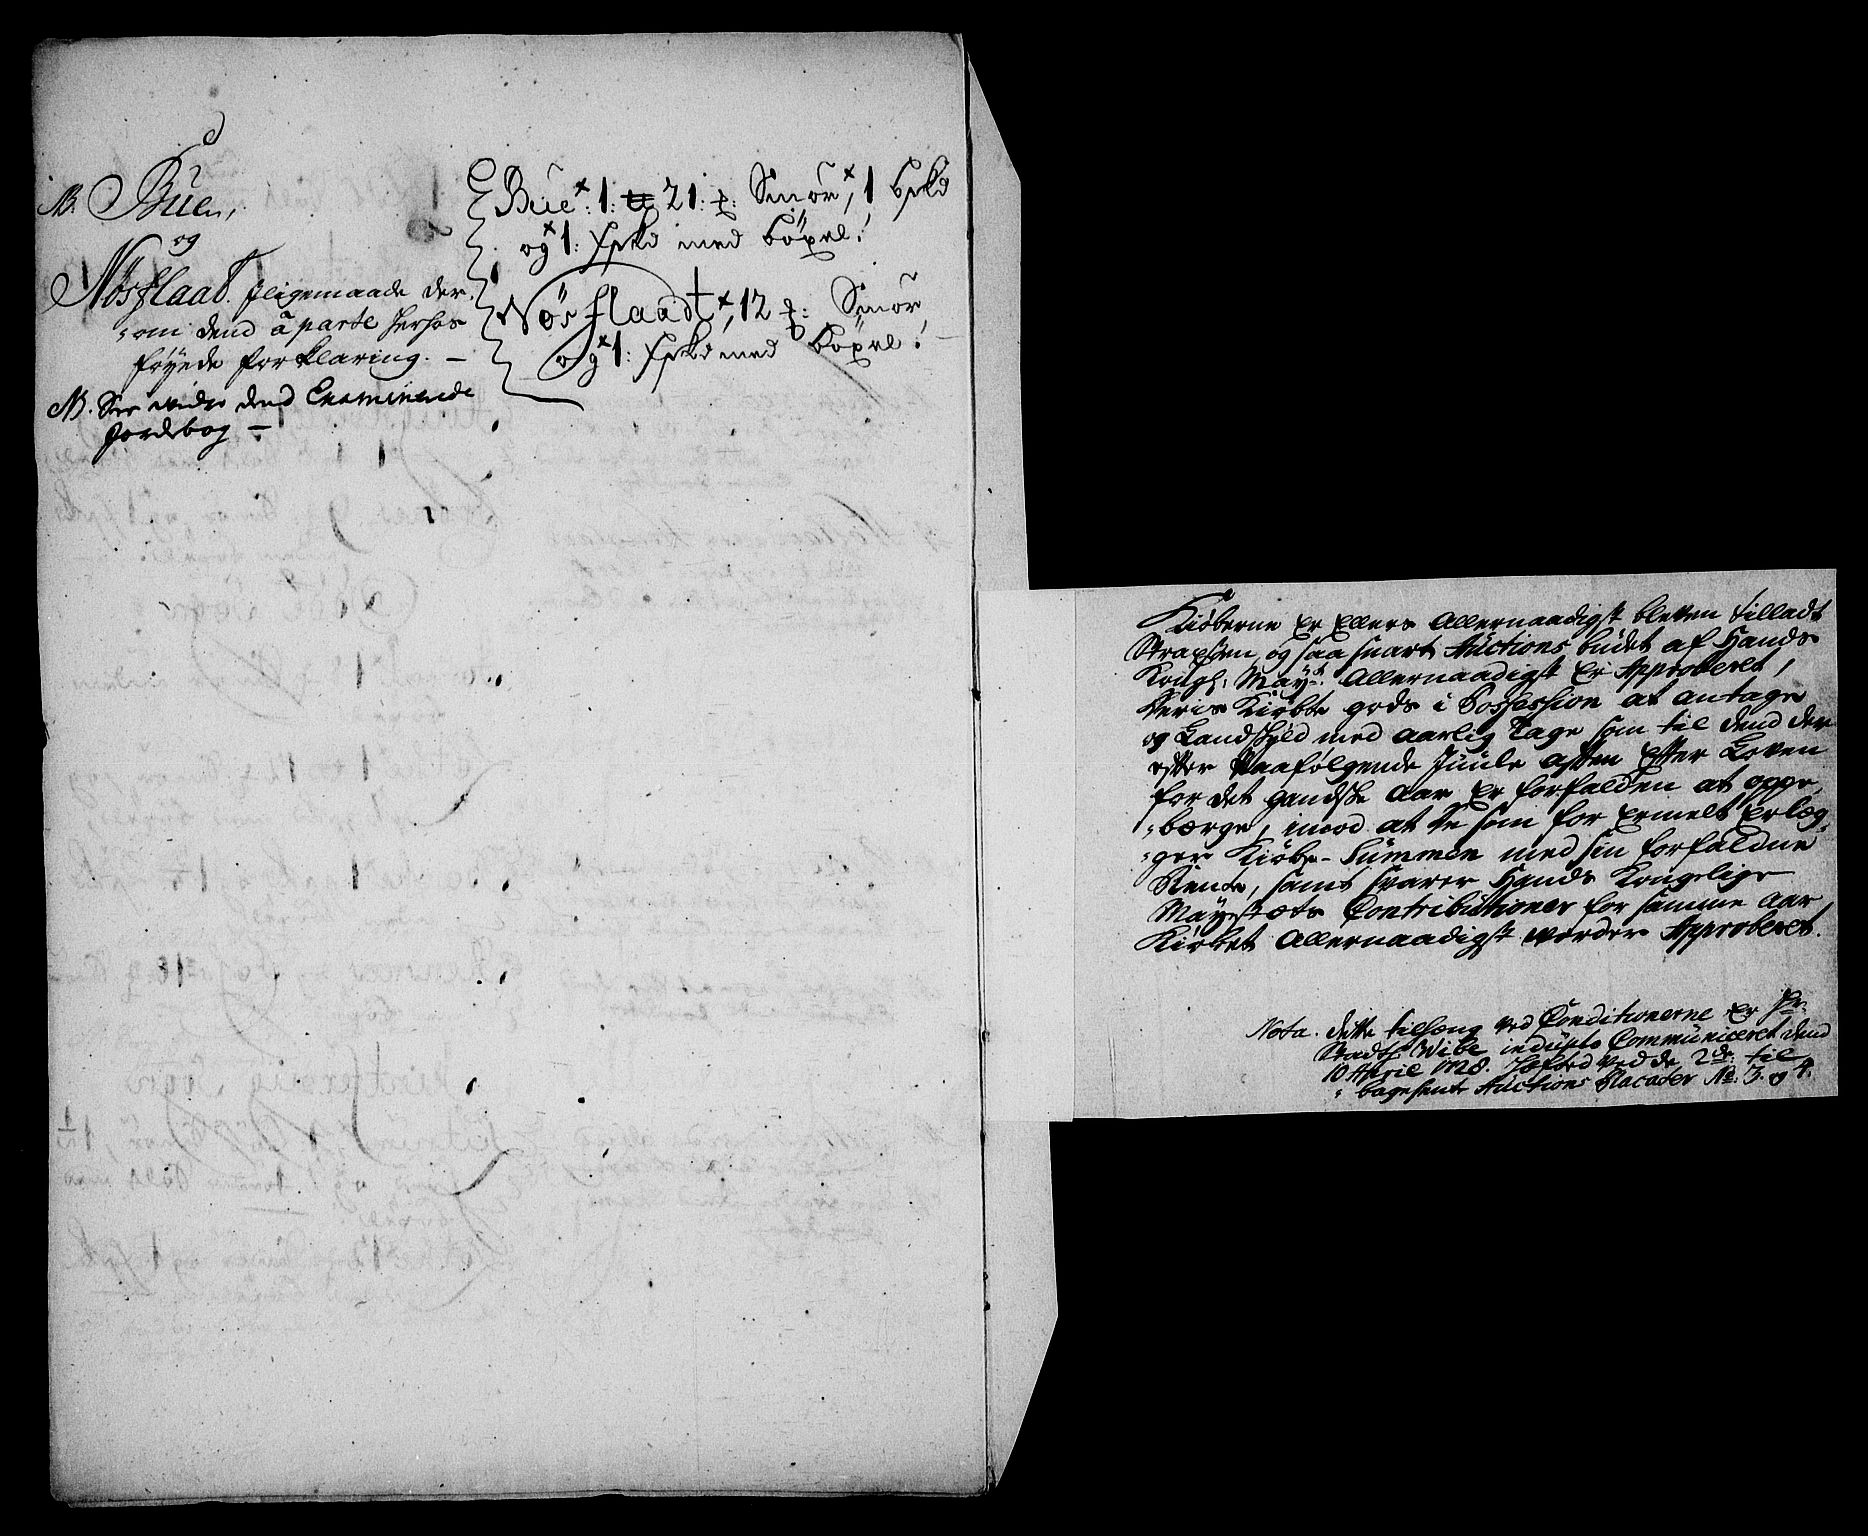 NB. Bue,
og
Nösflaat. Jligemaade der-
om dend á parte herhos
föyede forklaring. —
NB. See widre dend Examinerede
Jordebog —
Bue: 1: 21: Smör, 1 hfld
og 1: med böxel!
Nösflaadt, 12 Smör
og 1: med böxel!
Kiöberne er Ellers Allernaadigst bleven tilladt
Straxsen og saa snart Auctions budet af Hands
Kongl: Mayt: Allernaadigst er Approberet,
deris Kiöbte gods i Possession at antage
og Landskyld med aarlig Tage som til dend der
efter paafölgende Juule aften Efter Loven
for det gandske Aar er forfalden at oppe,
börge, imod at de som for ermelt Erlæg,
ger Kiöbe-Summen med sin forfaldne
Rente, samt svarer Hands Kongelige
Mayestæts Contributioner for samme Aar
Kiöbet Allernaadigst worder Approberet.
Nota. dette tilhæng ved Conditionerne er Hr:
Stadth: Wibe induplo Communiceret dend
10 April 1728. hæftед ved de 2de: til
bagesente Auctions Placater No: 3. og 4.